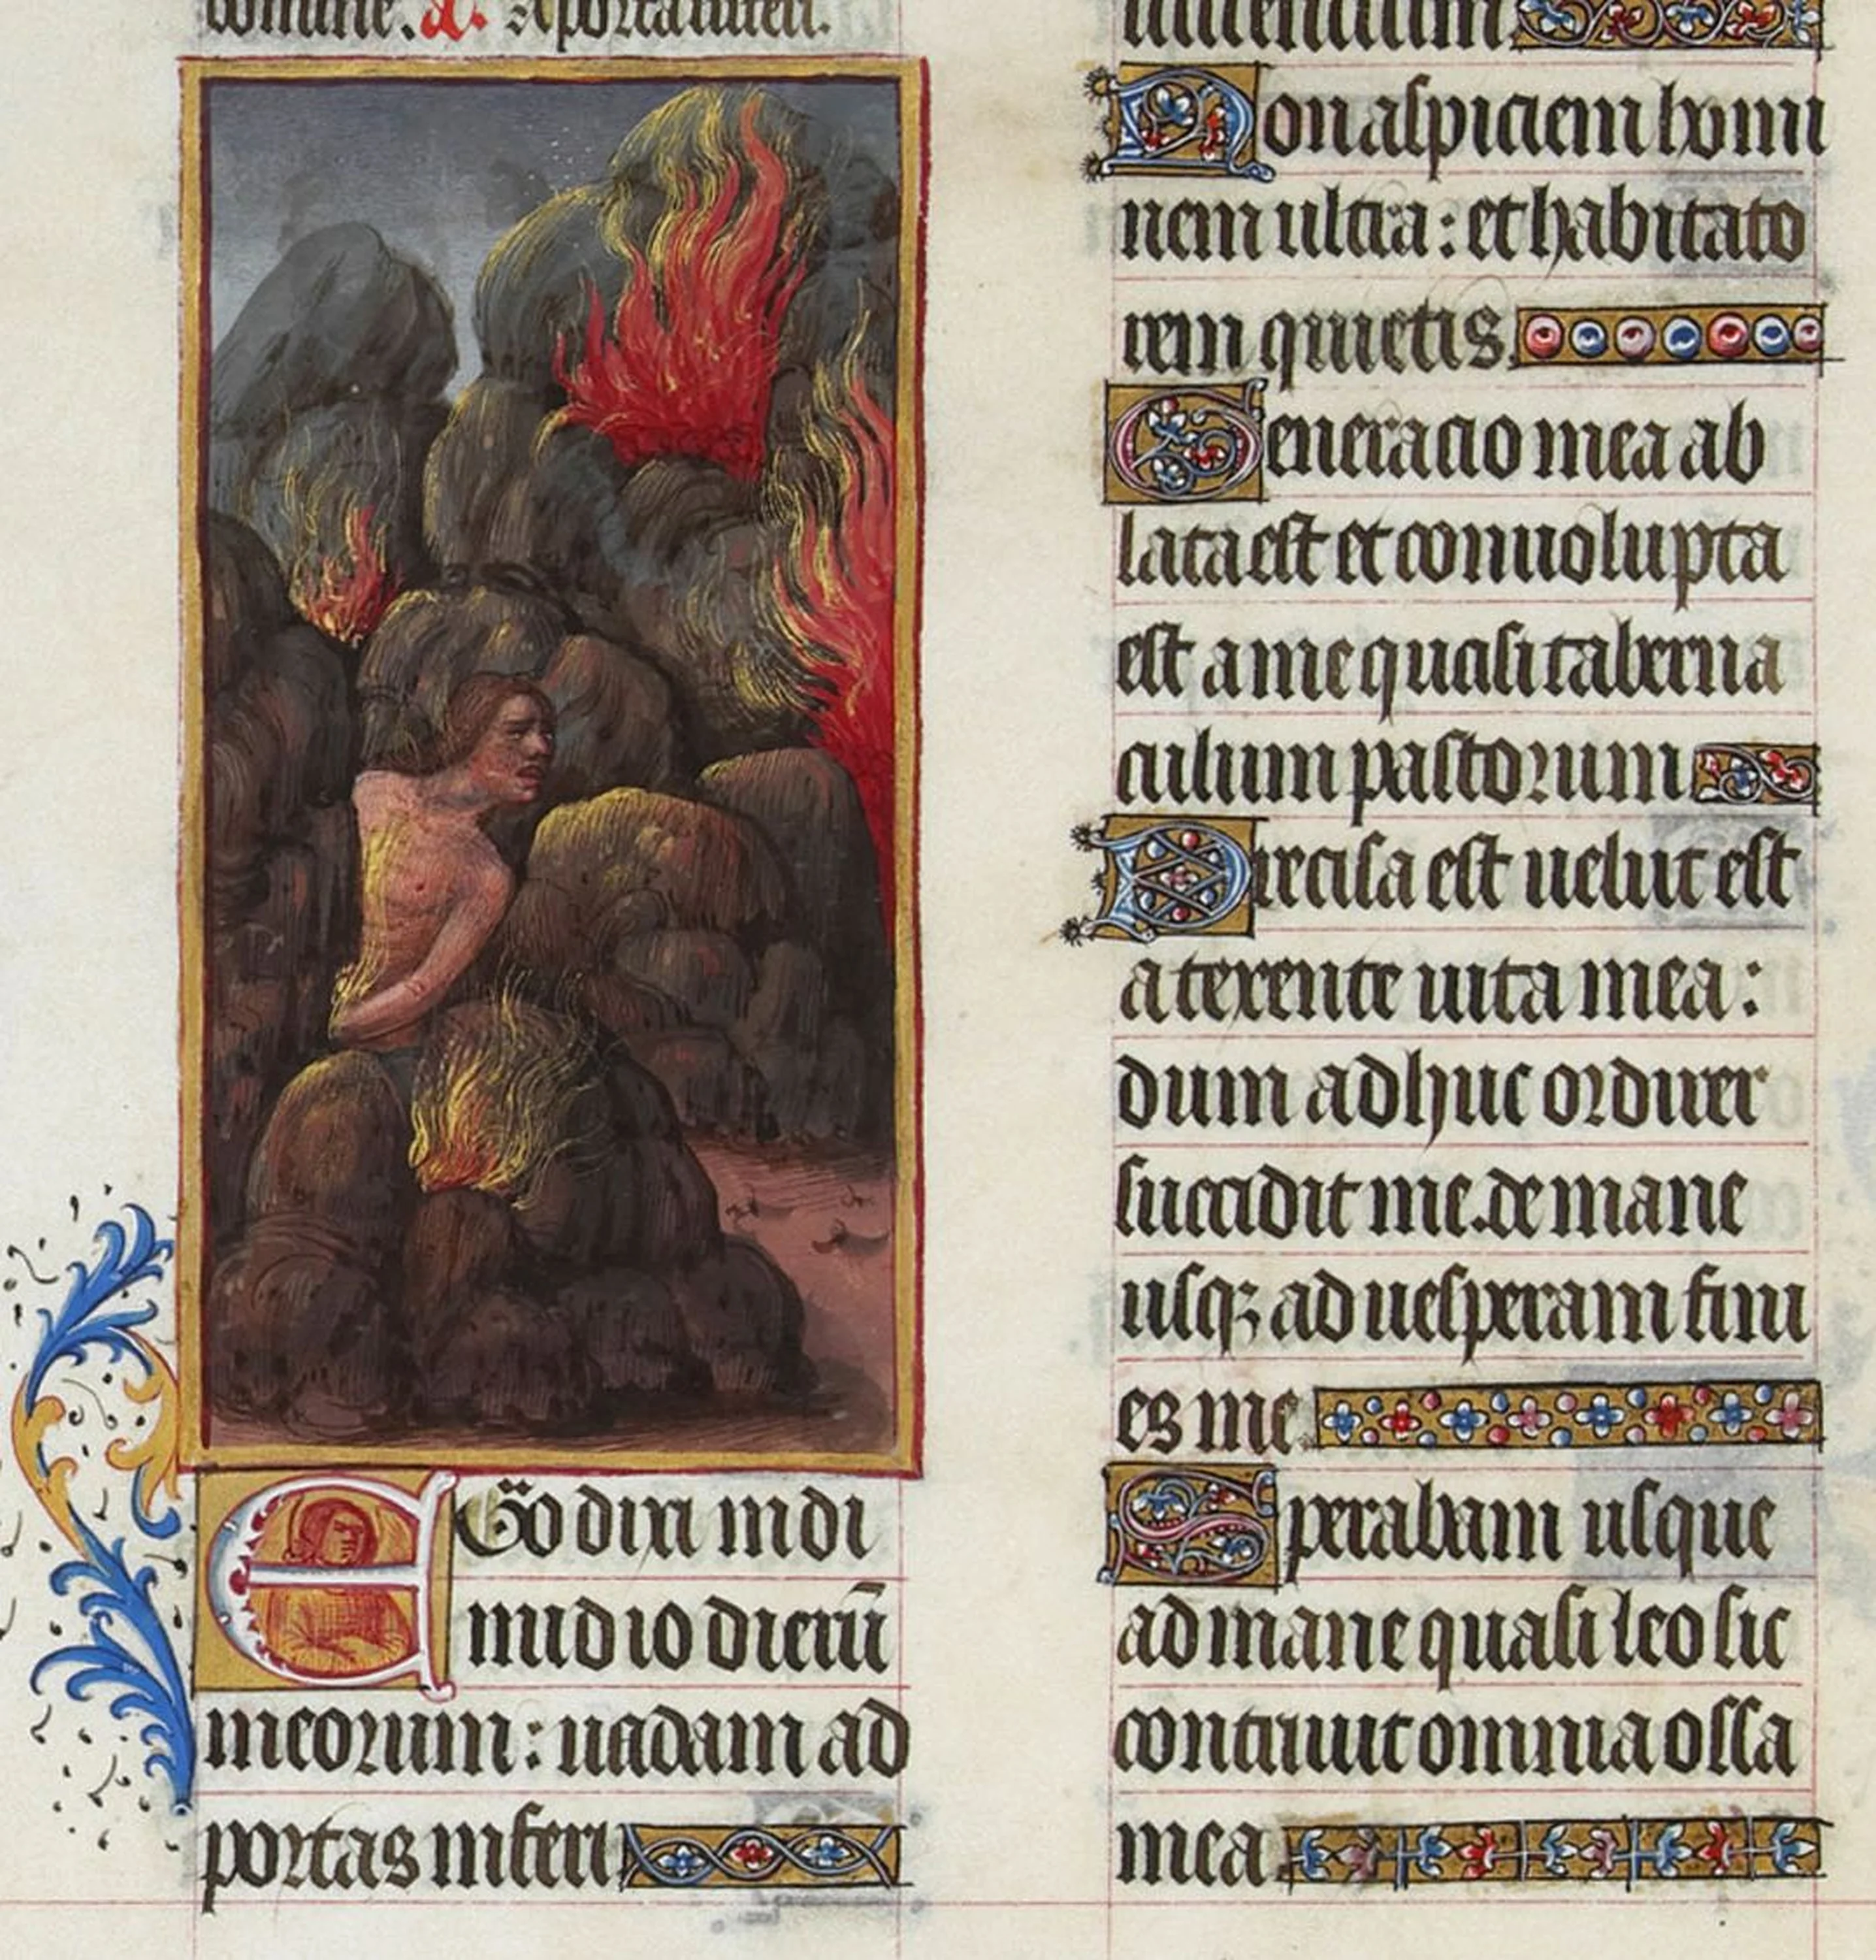 domine. a. A porta inferi.
EGo dixi in di
midio dierū
meorum: uadam ad
portas inferi
uiuentium.
Non aspiciam homi
nem ultra: et habitato
rem quietis.
Generacio mea ab
lata est et conuoluta
est a me quasi taberna
culum pastorum
Precisa est uelut est
a texente uita mea:
dum adhuc ordirer
succidit me. de mane
usqꝫ ad uesperam fini
es me.
Sperabam usque
ad mane quasi leo sic
contriuit omnia ossa
mea.